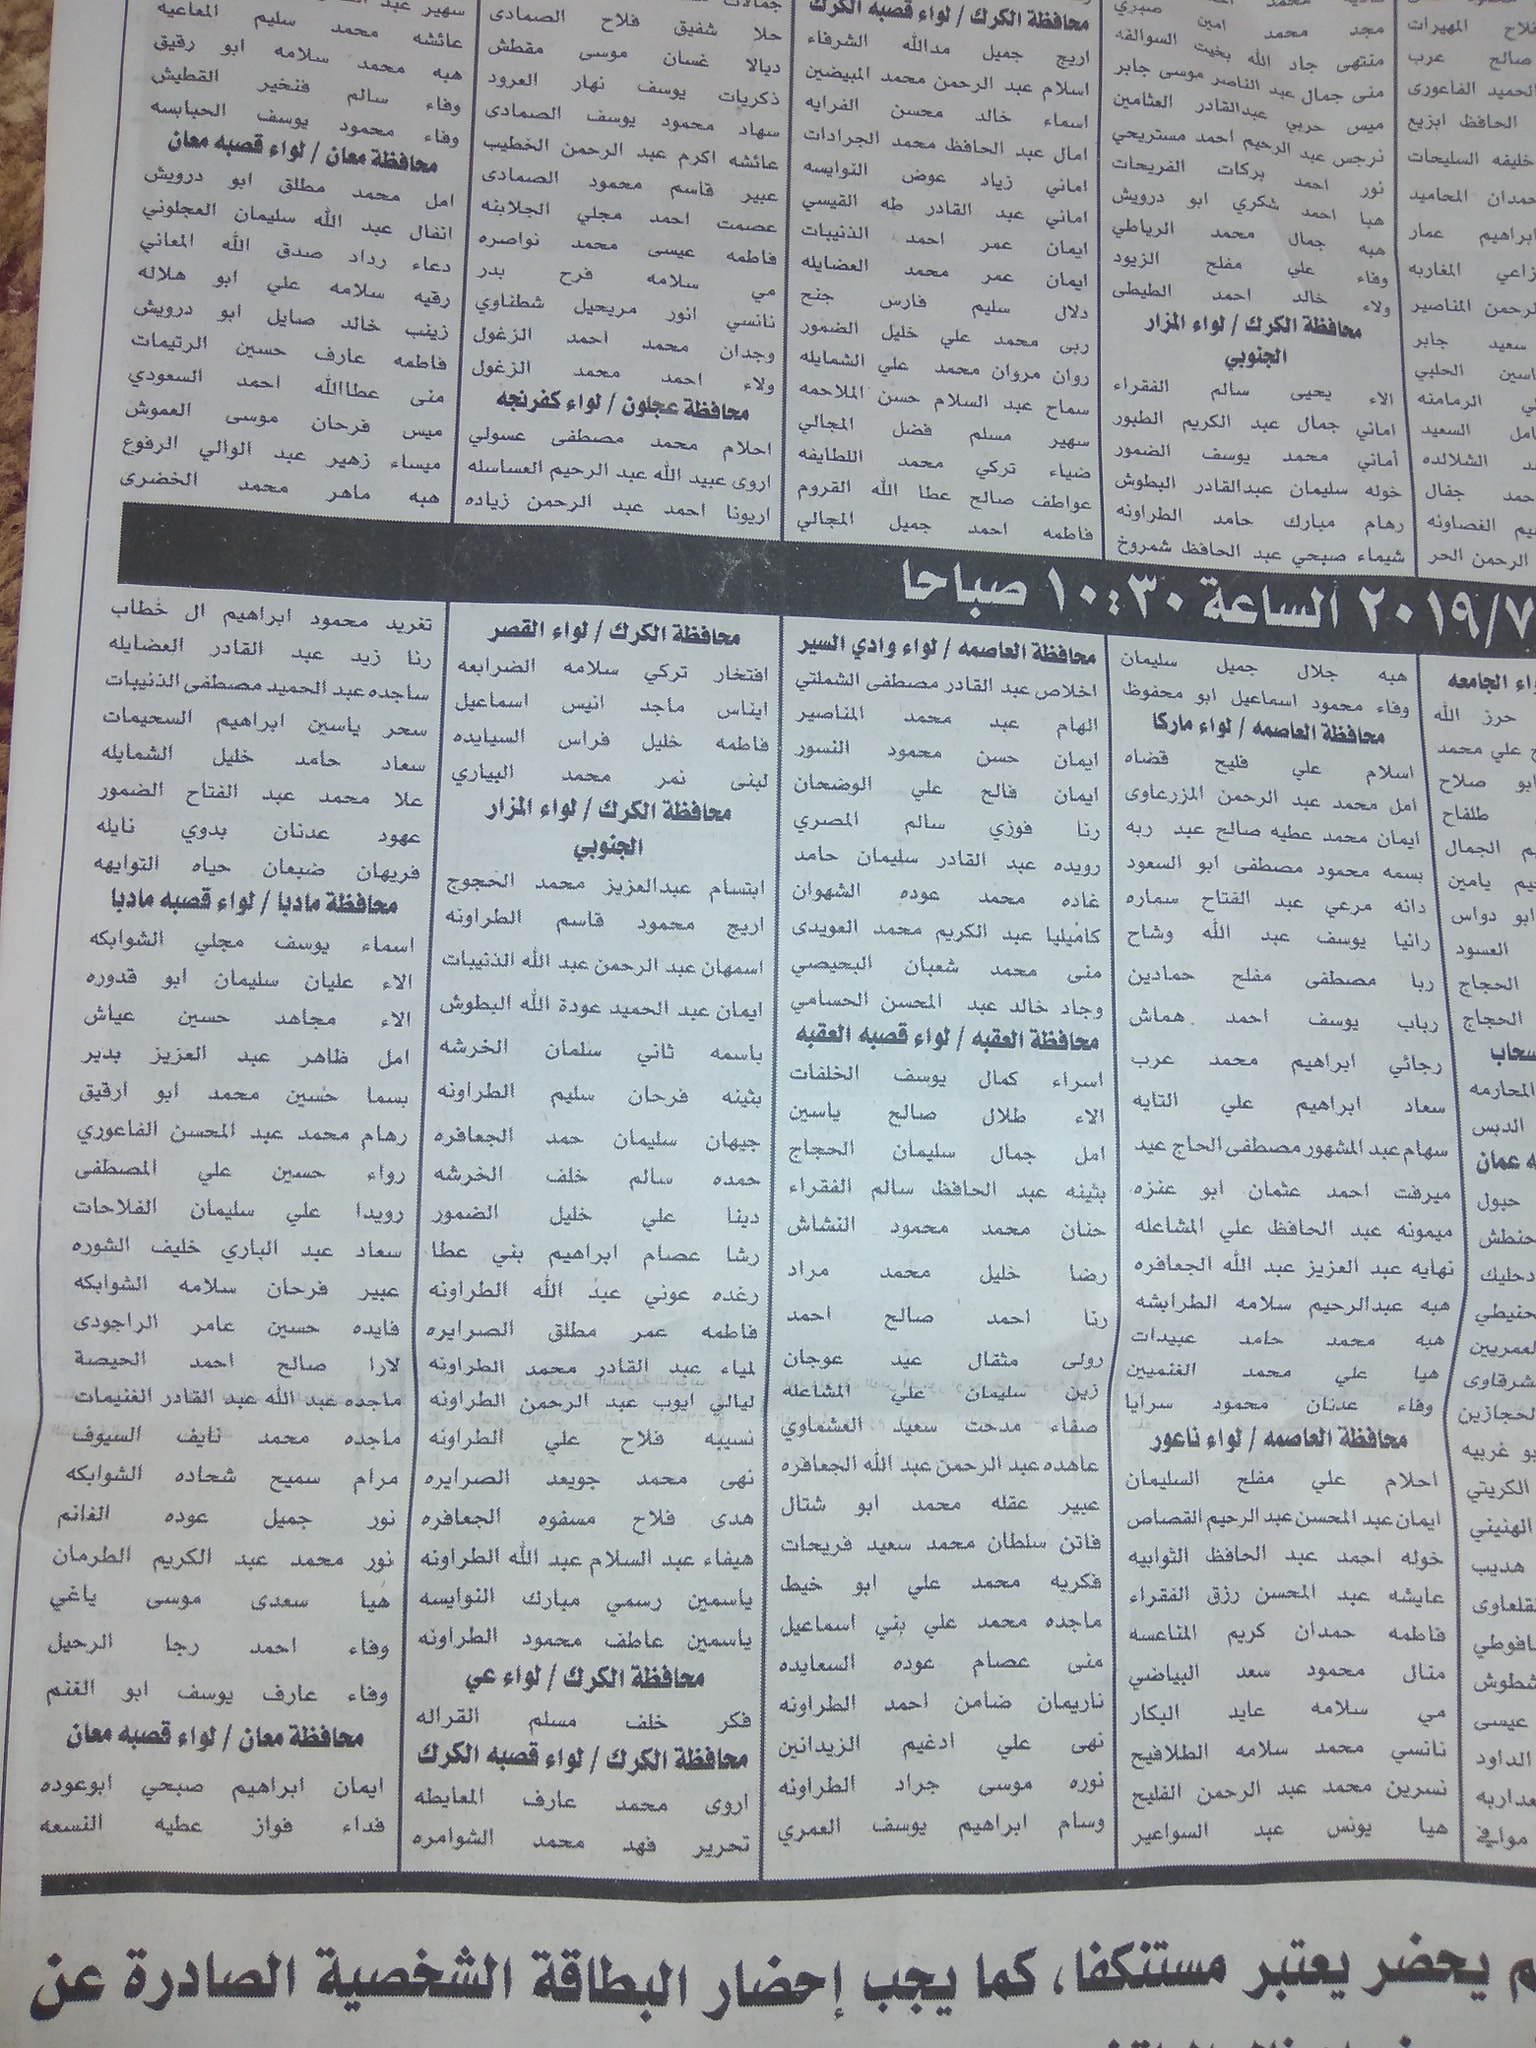 فلاح المهيرات
صالح عرب
الحميد الفاعوري
الحافظ ابزيع
خليفه السليحات
حمدان المحاميد
ابراهيم عمار
المغاربه
الرحمن المناصير
سعيد جابر
ياسين الحلبي
الرمامنه
السعيد
الشلالده
احمد جفال
الفصاونه
الرحمن الحر
مجد محمد امين صبري
منتهى جاد الله بخيت السوالقه
منى جمال عبد الناصر موسى جابر
ميس حربي عبدالقادر العثامين
نرجس عبد الرحيم احمد مستريحي
نور احمد بركات الفريحات
هبا احمد شكري ابو درويش
هبه جمال محمد الرياطي
وفاء علي مفلح الزيود
ولاء خالد احمد الطيطي
محافظة الكرك / لواء المزار
الجنوبي
الاء يحيى سالم الفقراء
اماني جمال عبد الكريم الطبور
أماني محمد يوسف الضمور
خوله سليمان عبدالقادر البطوش
رهام مبارك حامد الطراونه
شيماء صبحي عبد الحافظ شمروخ
محافظة الكرك / لواء قصبه الكرك
اريج جميل مدالله الشرفاء
اسلام عبد الرحمن محمد المبيضين
اسماء خالد محسن الفرايه
امال عبد الحافظ محمد الجرادات
اماني زياد عوض النوايسه
اماني عبد القادر طه القيسي
ايمان عمر احمد الذنيبات
ايمان عمر محمد العضايله
دلال سليم فارس جنح
ربى محمد علي خليل الضمور
روان مروان محمد علي الشمايله
سماح عبد السلام حسن الملاحمه
سهير مسلم فضل المجالي
ضياء تركي محمد اللطايفه
عواطف صالح عطا الله القروم
فاطمه احمد جميل المجالي
حلا شفيق فلاح الصمادى
ديالا غسان موسى مقطش
ذكريات يوسف نهار العرود
سهاد محمود يوسف الصمادى
عائشه اكرم عبد الرحمن الخطيب
عبير قاسم محمود الصمادى
عصمت احمد مجلي الجلابنه
فاطمه عيسى محمد نواصره
مي سلامه فرح بدر
نانسي انور مريحيل شطناوي
وجدان محمد احمد الزغول
ولاء احمد محمد الزغول
محافظة عجلون / لواء كفرنجه
احلام محمد مصطفى عسولي
اروى عبيد الله عبد الرحيم العساسله
اريونا احمد عبد الرحمن زياده
عائشه محمد سليم المفاعيه
هبه محمد سلامه ابو رقيق
وفاء سالم فنخير القطيش
وفاء محمود يوسف الحبابسه
محافظة معان / لواء قصبه معان
امل محمد مطلق ابو درويش
انفال عبد الله سليمان العجلوني
دعاء رداد صدق الله المعاني
رقيه سلامه علي ابو هلاله
زينب خالد صايل ابو درويش
فاطمه عارف حسين الرتيمات
منى عطاالله احمد السعودي
ميس فرحان موسى العموش
ميساء زهير عبد الوالي الرفوع
هبه ماهر محمد الخضرى
٢٠١٩/٧ الساعة ١٠:٣٠ صباحا
لواء الجامعه
حرز الله
علي محمد
ابو صلاح
طلفاح
الجمال
يامين
ابو دواس
العسود
الحجاج
الحجاج
سحاب
المحارمه
الدبس
عمان
حبول
حنطش
دحليك
حنيطي
العمريين
الحجازين
ابو غريبه
الكريتي
الهنيني
هديب
عيسى
الداود
موافي
هبه جلال جميل سليمان
وفاء محمود اسماعيل ابو محفوظ
محافظة العاصمه / لواء ماركا
اسلام علي فليح قضاه
امل محمد عبد الرحمن المزرعاوى
ايمان محمد عطيه صالح عبد ربه
بسمه محمود مصطفى ابو السعود
دانه مرعي عبد الفتاح سماره
رانيا يوسف عبد الله وشاح
ربا مصطفى مفلح حمادين
رباب يوسف احمد هماش
رجائي ابراهيم محمد عرب
سعاد ابراهيم علي التايه
سهام عبد المشهور مصطفى الحاج عيد
ميرفت احمد عثمان ابو عنزه
ميمونه عبد الحافظ علي المشاعله
نهايه عبد العزيز عبد الله الجعافره
هبه عبدالرحيم سلامه الطرابشه
هبه محمد حامد عبيدات
هيا علي محمد الغنميين
وفاء عدنان محمود سرايا
محافظة العاصمه / لواء ناعور
احلام علي مفلح السليمان
ايمان عبد المحسن عبد الرحيم القصاص
خوله احمد عبد الحافظ الثوابيه
عايشه عبد المحسن رزق الفقراء
فاطمه حمدان كريم المناعسه
منال محمود سعد البياضي
مي سلامه عايد البكار
نانسي محمد سلامه الطلافيح
نسرين محمد عبد الرحمن الفليح
هيا يونس عبد السواعير
محافظة العاصمه / لواء وادي السير
اخلاص عبد القادر مصطفى الشملتي
الهام عبد محمد المناصير
ايمان حسن محمود النسور
ايمان فالح علي الوضحان
رنا فوزي سالم المصري
رويده عبد القادر سليمان حامد
غاده محمد عوده الشهوان
كاميليا عبد الكريم محمد العويدى
منى محمد شعبان البحيصي
وجاد خالد عبد المحسن الحسامي
محافظة العقبه / لواء قصبه العقبه
اسراء كمال يوسف الخلفات
الاء طلال صالح ياسين
امل جمال سليمان الحجاج
بثينه عبد الحافظ سالم الفقراء
حنان محمد محمود النشاش
رضا خليل محمد مراد
رنا احمد صالح احمد
رولى مثقال عيد عوجان
زين سليمان علي المشاعله
صفاء مدحت سعيد العشماوي
عاهده عبد الرحمن عبد الله الجعافره
عبير عقله محمد ابو شتال
فاتن سلطان محمد سعيد فريحات
فكريه محمد علي ابو خيط
ماجده محمد علي بني اسماعيل
منى عصام عوده السعايده
ناريمان ضامن احمد الطراونه
نهى علي ادغيم الزيدانين
نوره موسى جراد الطراونه
وسام ابراهيم يوسف العمري
محافظة الكرك / لواء القصر
افتخار تركي سلامه الضرابعه
ايناس ماجد انيس اسماعيل
فاطمه خليل فراس السيايده
لبنى نمر محمد البياري
محافظة الكرك / لواء المزار
الجنوبي
ابتسام عبدالعزيز محمد الحجوج
اريج محمود قاسم الطراونه
اسمهان عبد الرحمن عبد الله الذنيبات
ايمان عبد الحميد عودة الله البطوش
باسمه ثاني سلمان الخرشه
بثينه فرحان سليم الطراونه
جيهان سليمان حمد الجعافره
حمده سالم خلف الخرشه
دينا علي خليل الضمور
رشا عصام ابراهيم بني عطا
رغده عوني عبد الله الطراونه
فاطمه عمر مطلق الصرايره
لمياء عبد القادر محمد الطراونه
ليالي ايوب عبد الرحمن الطراونه
نسيبه فلاح علي الطراونه
نهى محمد جويعد الصرايره
هدى فلاح مسفوه الجعافره
هيفاء عبد السلام عبد الله الطراونه
ياسمين رسمي مبارك النوايسه
ياسمين عاطف محمود الطراونه
محافظة الكرك / لواء عي
فكر خلف مسلم القراله
محافظة الكرك / لواء قصبه الكرك
اروى محمد عارف المعايطه
تحرير فهد محمد الشوامره
تغريد محمود ابراهيم ال خطاب
رنا زيد عبد القادر العضايله
ساجده عبد الحميد مصطفى الذنيبات
سحر ياسين ابراهيم السحيمات
سعاد حامد خليل الشمايله
علا محمد عبد الفتاح الضمور
عهود عدنان بدوي نايله
فريهان ضبعان حياه التوايهه
محافظة مادبا / لواء قصبه مادبا
اسماء يوسف مجلي الشوابكه
الاء عليان سليمان ابو قدوره
الاء مجاهد حسين عياش
امل ظاهر عبد العزيز بدير
بسما حسين محمد ابو ارقيق
رهام محمد عبد المحسن الفاعوري
رواء حسين علي المصطفى
رويدا علي سليمان الفلاحات
سعاد عبد الباري خليف الشوره
عبير فرحان سلامه الشوابكه
فايده حسين عامر الراجودى
لارا صالح احمد الحيصة
ماجده عبد الله عبد القادر الغنيمات
ماجده محمد نايف السيوف
مرام سميح شحاده الشوابكه
نور جميل عوده الغانم
نور محمد عبد الكريم الطرمان
هيا سعدى موسى ياغي
وفاء احمد رجا الرحيل
وفاء عارف يوسف ابو الغنم
محافظة معان / لواء قصبه معان
ايمان ابراهيم صبحي ابوعوده
فداء فواز عطيه النسعه
يحضر يعتبر مستنكفا، كما يجب إحضار البطاقة الشخصية الصادرة عن